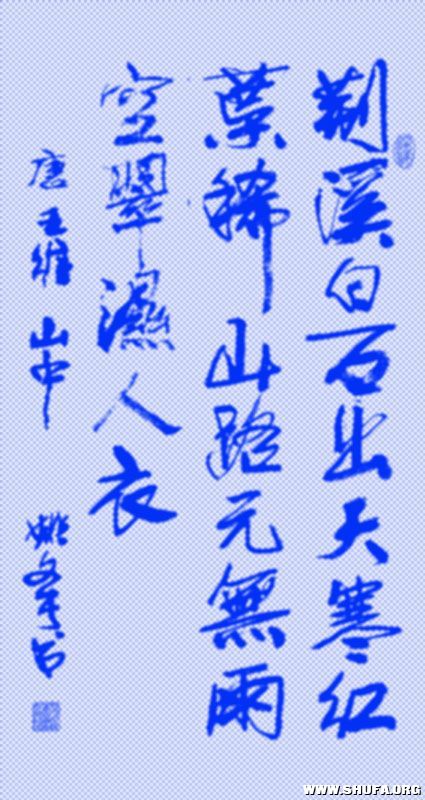 荆溪白石出天寒红
葉稀山路元無雨
空翠濕人衣
唐王維山中 姚
WWW.SHUFA.ORG